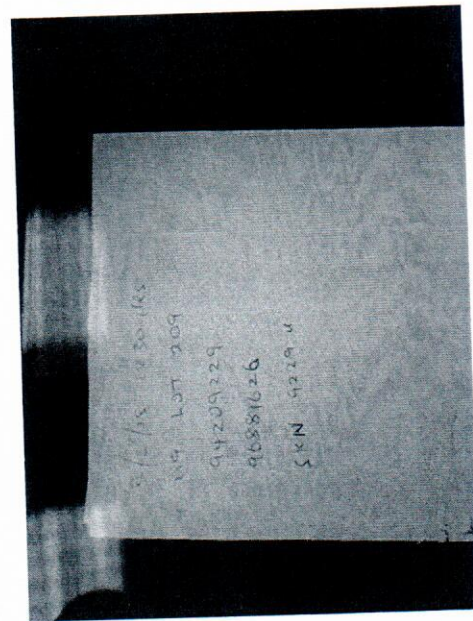 LOT 209
94209229
96881626
SKN 9229 U